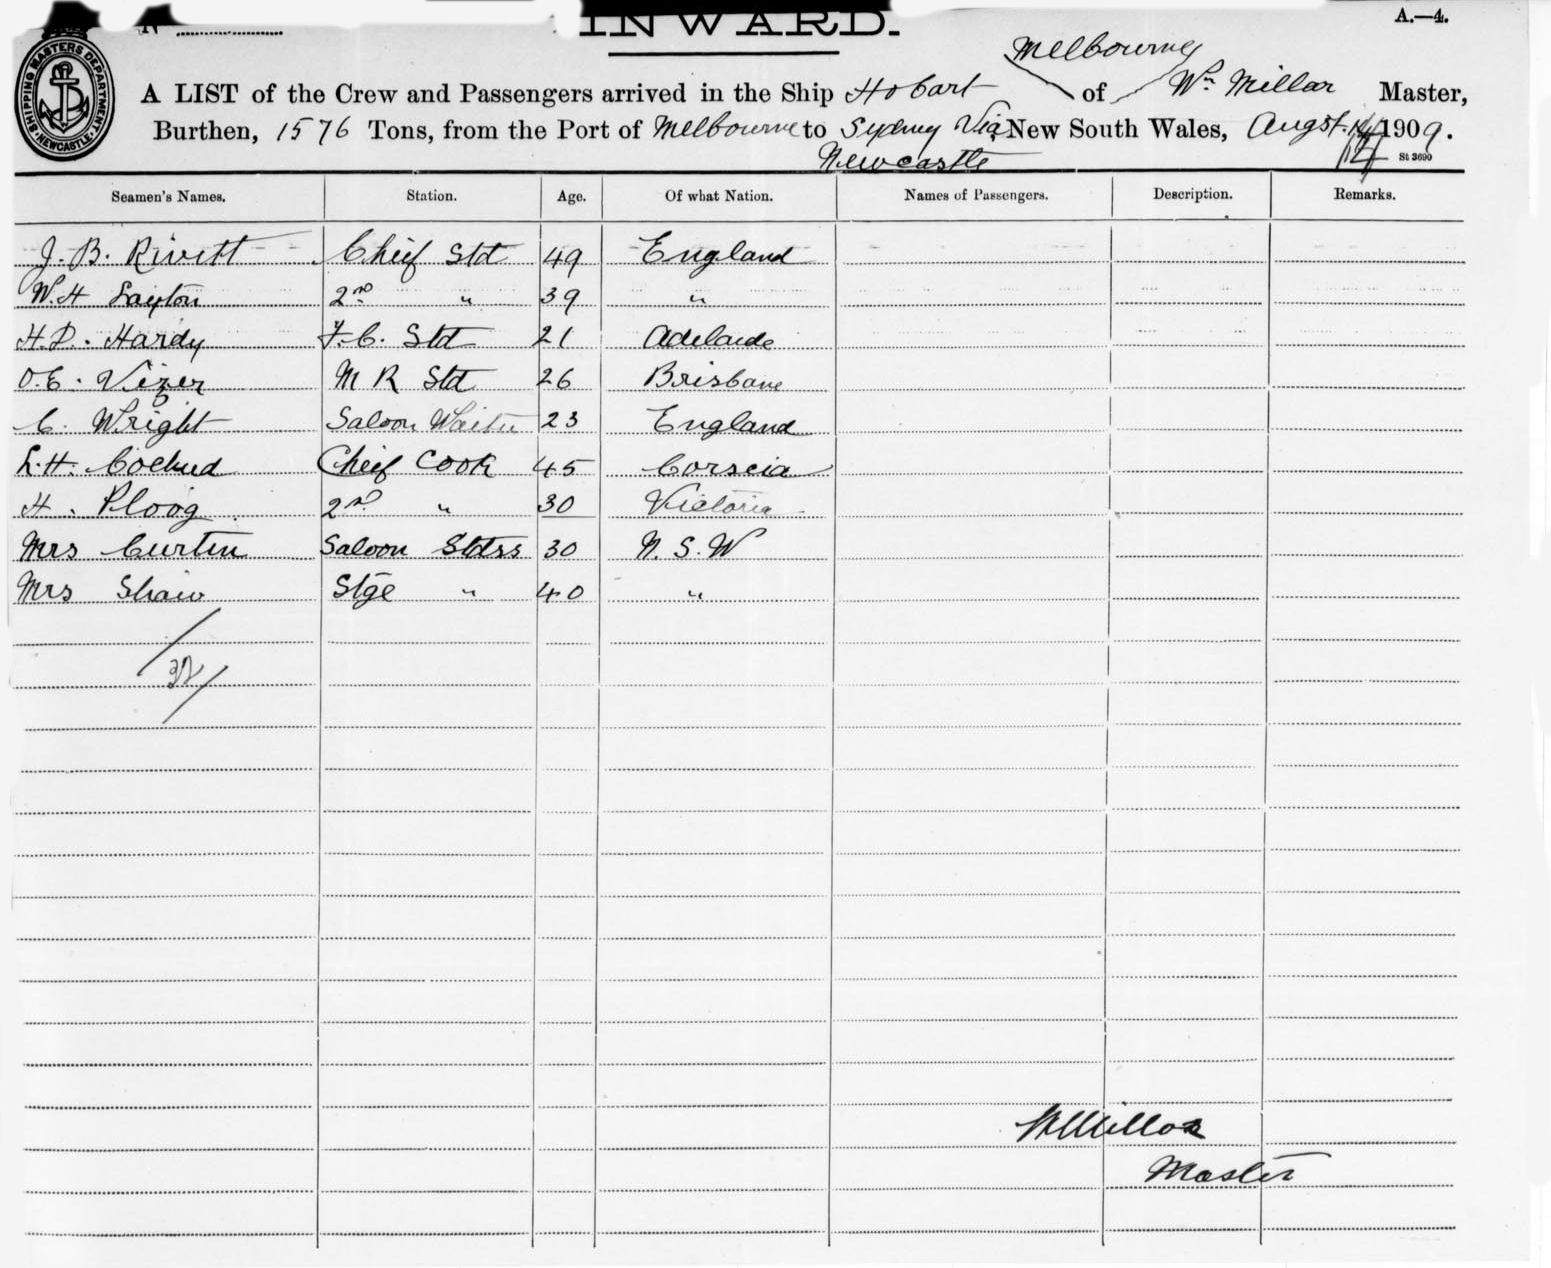 No
INWARD.
A.—4.
SHIPPING MASTERS DEPARTMENT. NEWCASTLE.
Melbourne
A LIST of the Crew and Passengers arrived in the Ship Hobart of Wm Millar Master,
Burthen, 1576 Tons, from the Port of Melbourne to Sydney Via New South Wales, Augst. 14 1909.
Newcastle
St 3690
Seamen's Names. Station. Age. Of what Nation. Names of Passengers. Description. Remarks.
J. B. Rivett Chief Std 49 England
W. H Layton 2nd " 39 "
H. D. Hardy F. C. Std 21 Adelaide
O. E. Vizer M R Std 26 Brisbane
C. Wright Saloon Waiter 23 England
L. H. Chief Cook 45 Corscia
H. Ploog 2nd " 30 Victoria
Mrs Curtin Saloon Stdss 30 N. S. W
Mrs Shaw Stge " 40 "
32
W Millar
Master